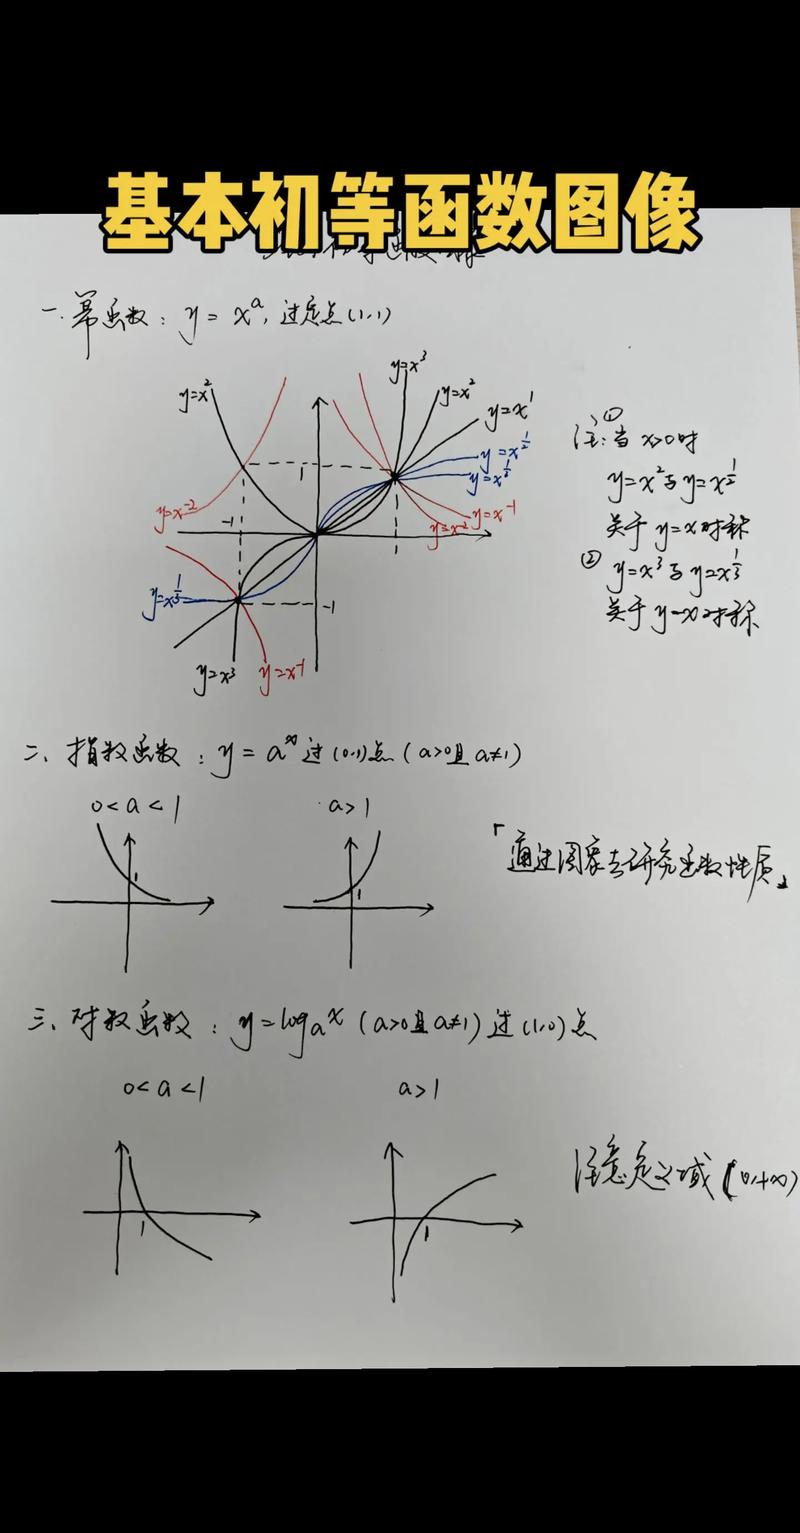 基本初等函数图像
一.幂函数：y = xᵃ，过定点(1,1)
y=x²
y=x³
y=x²
y=x¹
y=x^½
y=x^⅓
y=x⁻¹
y=x⁻²
1
-1
y=x⁻²
y=x^⅓
-1
y=x³
y=x⁻¹
注：①当 x>0时
y=x²与y=x^½
关于 y=x对称
② y=x³与y=x^⅓
关于 y=x对称
二、指数函数：y = aˣ 过(0,1)点(a>0且a≠1)
0<a<1
a>1
1
1
「通过图象去研究函数性质」
三、对数函数：y=logₐx (a>0且a≠1)过(1,0)点
0<a<1
a>1
1
1
注意定义域(0,+∞)